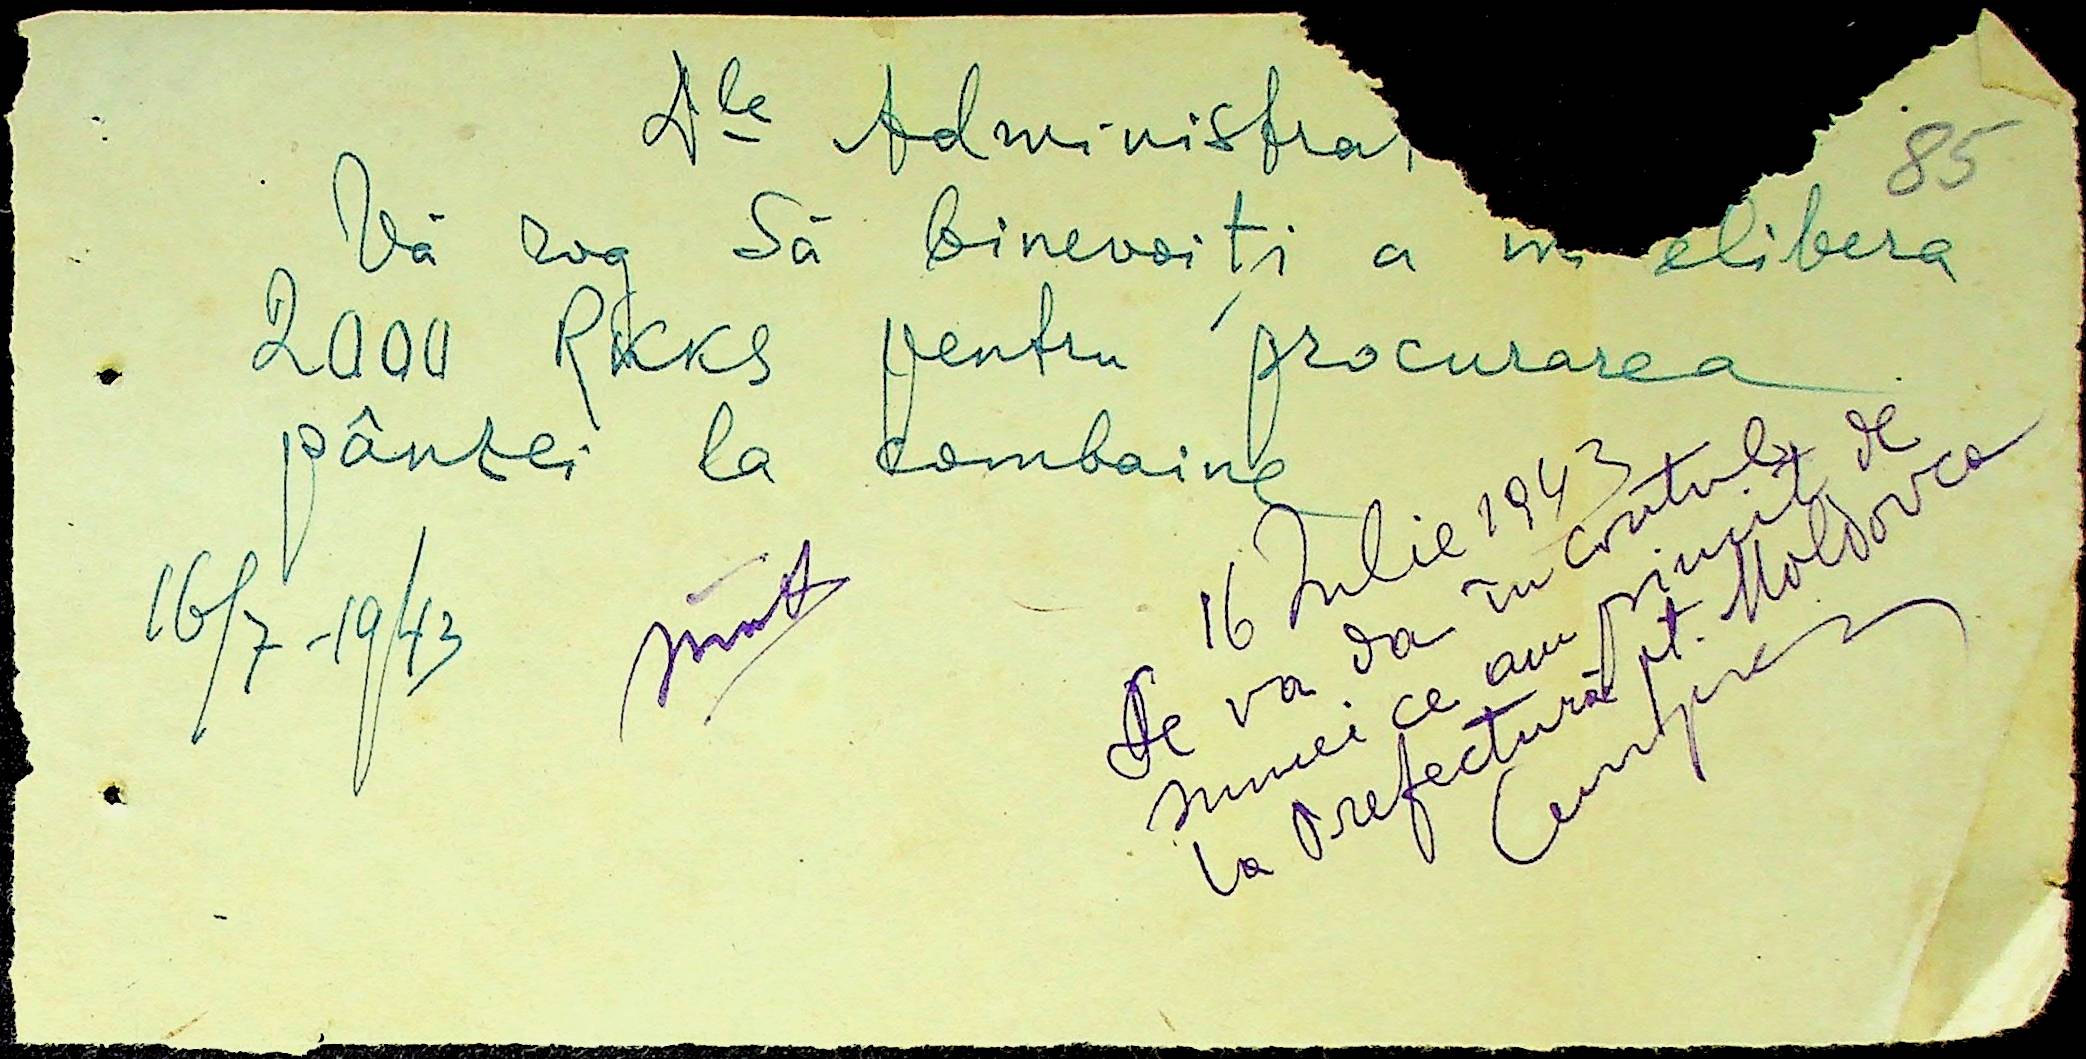 85
Dle Administra
Vă rog Să binevoiți a mi elibera
2000 RKKS pentru procurarea
pânzei la combaine
16/7-1943
16 Iulie 1943
Se va da în contul
sumei ce am primit de
la Prefectură pt. Moldovca